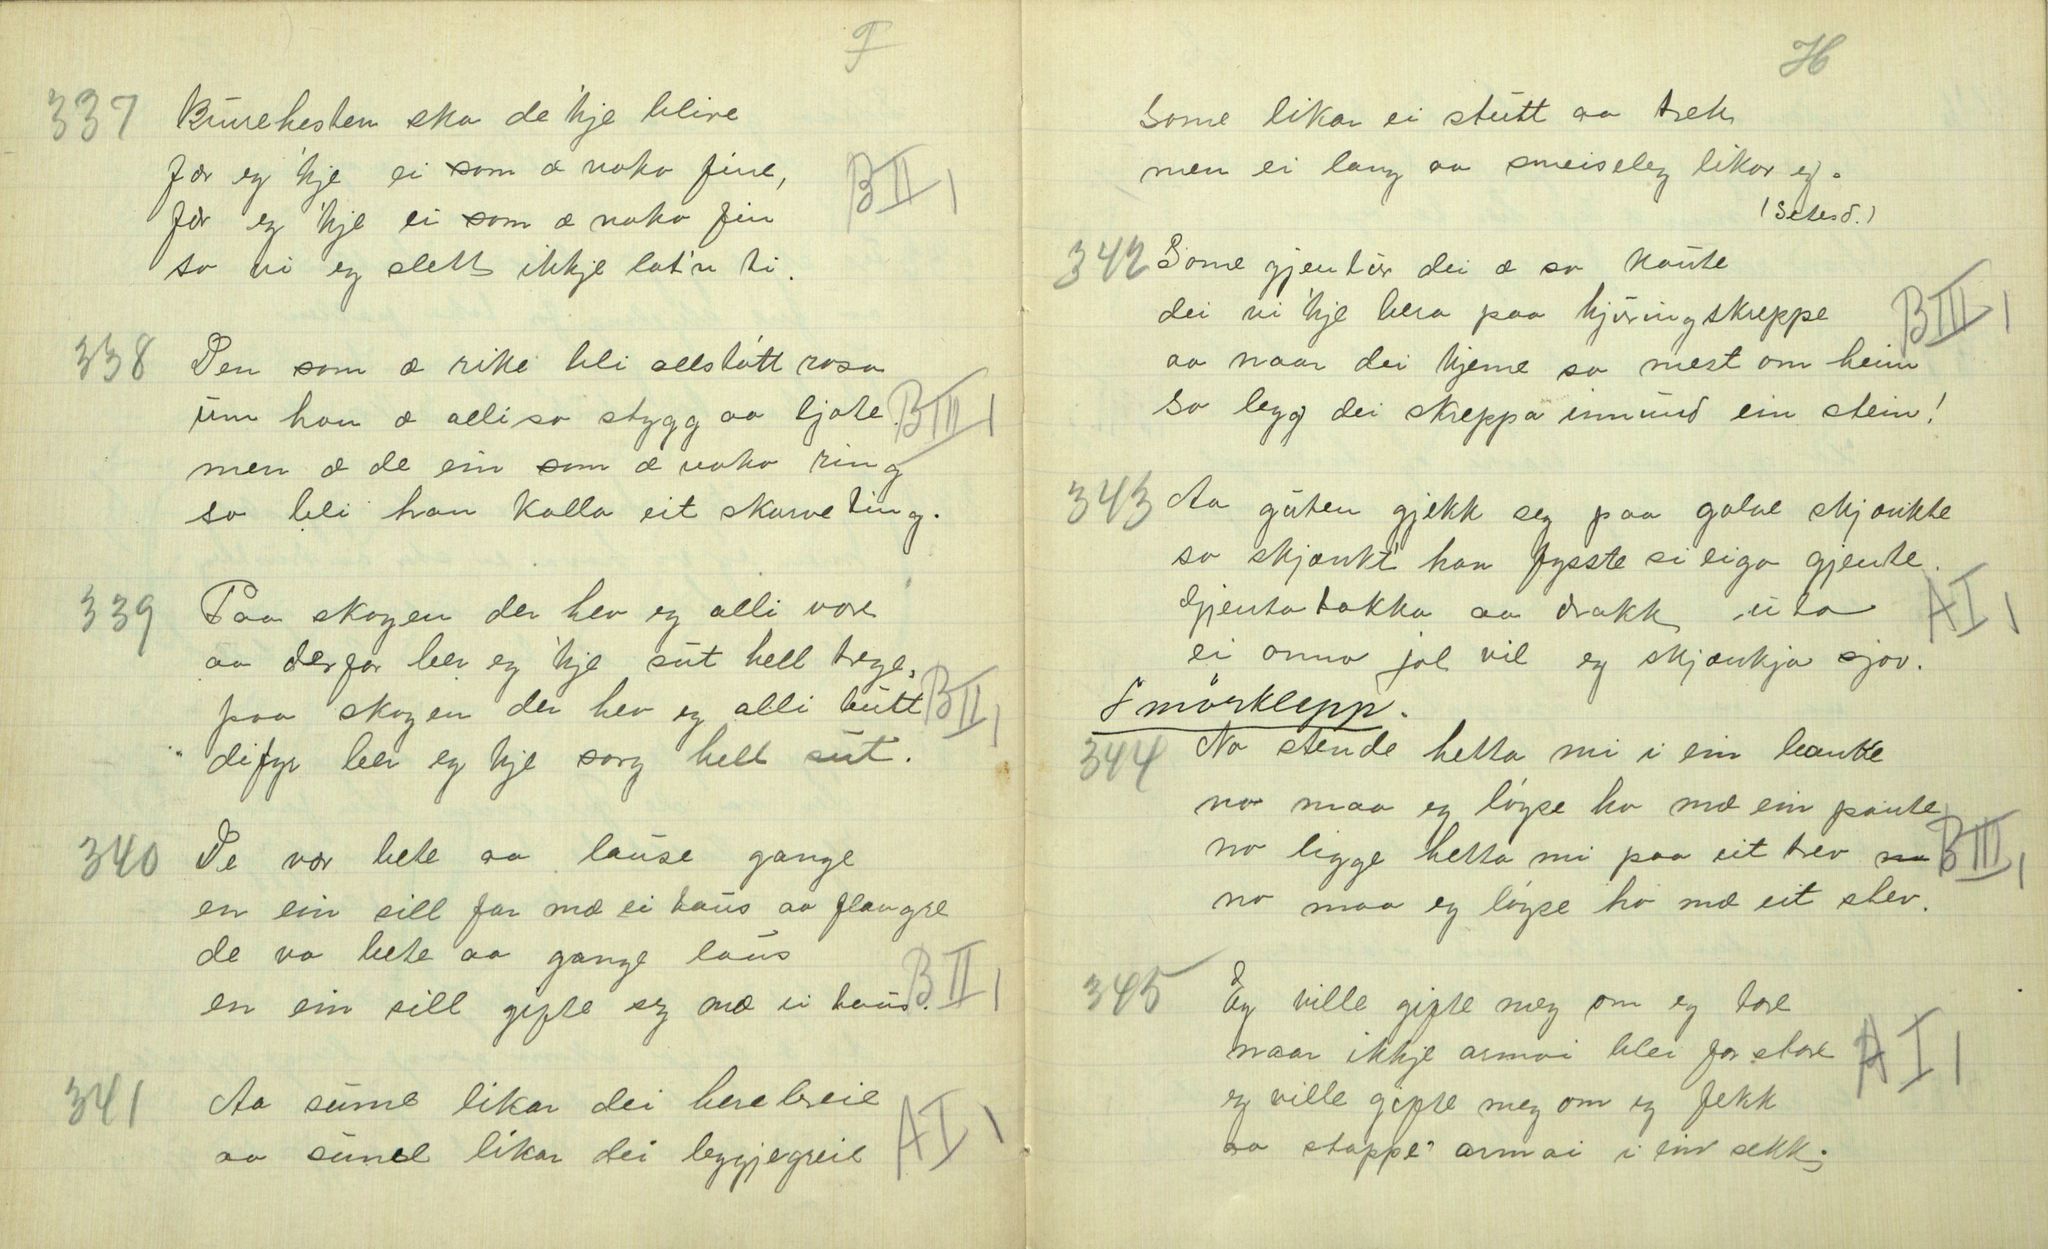 F
337 Brurehesten ska de 'kje blive
fær eg 'kje ei som æ noko fine,
før eg 'kje ei som æ noko fin
so vi eg slett ikkje lat'n ti.
BII 1
338 Den som æ rike bli allstøtt rosa
um han æ alli so stygg aa ljote
men æ de ein som æ noko ring
so bli han kalla eit skarveting.
BIII 1
339 Paa skogen der hev eg alli vore
aa derfor ber eg 'kje sut hell trege,
paa skogen der hev eg alli butt
difyr ber eg kje sorg hell sut.
BII 1
340 De var bete aa lause gange
en ein sill far mæ ei taus aa flangre
de va bete aa gange laus
en ein sill gifte seg mæ ei taus.
BII 1
341 Aa sume likar dei herebreie
aa sume likar dei leggjegreie
AI 1
H
Some likar ei stutt aa trek
men ei lang aa smeiseleg likar eg.
(Setesd.)
342 Some gjentur dei æ so kaute
dei vi 'kje bera paa kjøringskreppe
aa naar dei kjeme so mest om heim
so legg dei skreppa innund ein stein!
BIII 1
343 Aa guten gjekk seg paa golve skjænkte
so skjænkt' han fysste si eiga gjente.
Gjenta takka aa drakk uta
ei onno jol vil eg skjænkja sjøv.
AI 1
Smørklepp.
344 No stende hetta mi i ein bante
no maa eg løyse ho mæ ein pante
no ligge hetta mi paa eit trev
no maa eg løyse ho mæ eit stev.
BIII 1
345 Eg ville gifte meg om eg tore
naar ikkje armoi blei for store
eg ville gifte meg om eg fekk
aa stappe' armoi i ein sekk;
AI 1